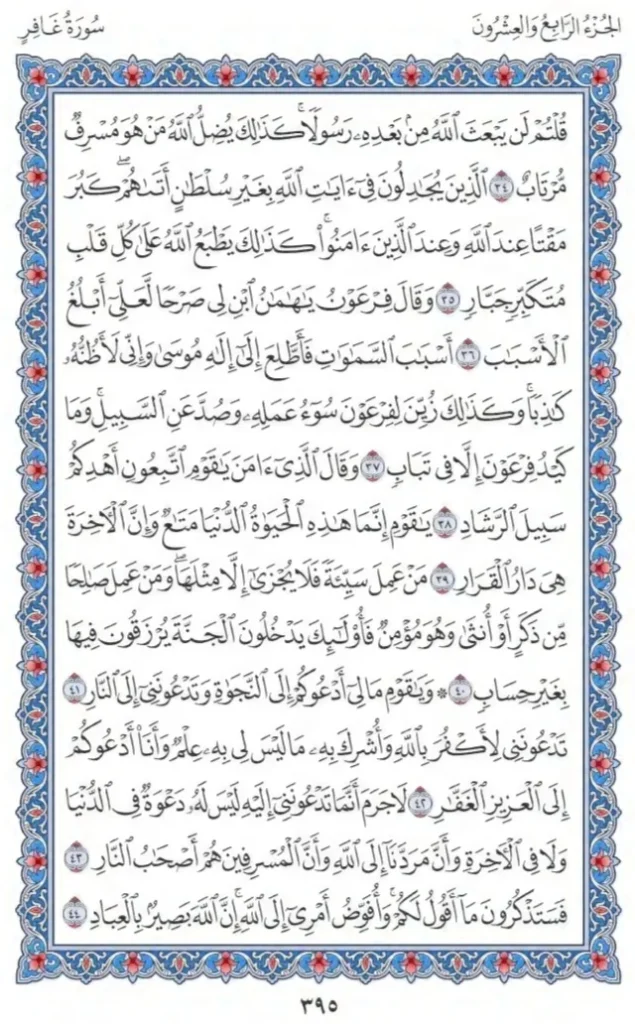 الجُزْءُ الرَّابِعُ وَالعِشْرُونَ
سُورَةُ غَافِرٍ
قُلْتُمْ لَن يَبْعَثَ ٱللَّهُ مِنۢ بَعْدِهِۦ رَسُولٗاۚ كَذَٰلِكَ يُضِلُّ ٱللَّهُ مَنْ هُوَ مُسْرِفٞ
مُّرْتَابٌ ٣٤ ٱلَّذِينَ يُجَٰدِلُونَ فِيٓ ءَايَٰتِ ٱللَّهِ بِغَيْرِ سُلْطَٰنٍ أَتَىٰهُمْۖ كَبُرَ
مَقْتًا عِندَ ٱللَّهِ وَعِندَ ٱلَّذِينَ ءَامَنُواْۚ كَذَٰلِكَ يَطْبَعُ ٱللَّهُ عَلَىٰ كُلِّ قَلْبِ
مُتَكَبِّرٖ جَبَّارٖ ٣٥ وَقَالَ فِرْعَوْنُ يَٰهَٰمَٰنُ ٱبْنِ لِي صَرْحٗا لَّعَلِّيٓ أَبْلُغُ
ٱلْأَسْبَٰبَ ٣٦ أَسْبَٰبَ ٱلسَّمَٰوَٰتِ فَأَطَّلِعَ إِلَىٰٓ إِلَٰهِ مُوسَىٰ وَإِنِّي لَأَظُنُّهُۥ
كَٰذِبٗاۚ وَكَذَٰلِكَ زُيِّنَ لِفِرْعَوْنَ سُوٓءُ عَمَلِهِۦ وَصُدَّ عَنِ ٱلسَّبِيلِۚ وَمَا
كَيْدُ فِرْعَوْنَ إِلَّا فِي تَبَابٖ ٣٧ وَقَالَ ٱلَّذِيٓ ءَامَنَ يَٰقَوْمِ ٱتَّبِعُونِ أَهْدِكُمْ
سَبِيلَ ٱلرَّشَادِ ٣٨ يَٰقَوْمِ إِنَّمَا هَٰذِهِ ٱلْحَيَوٰةُ ٱلدُّنْيَا مَتَٰعٞ وَإِنَّ ٱلْأٓخِرَةَ
هِيَ دَارُ ٱلْقَرَارِ ٣٩ مَنْ عَمِلَ سَيِّئَةٗ فَلَا يُجْزَىٰٓ إِلَّا مِثْلَهَاۖ وَمَنْ عَمِلَ صَٰلِحٗا
مِّن ذَكَرٍ أَوْ أُنثَىٰ وَهُوَ مُؤْمِنٞ فَأُوْلَٰٓئِكَ يَدْخُلُونَ ٱلْجَنَّةَ يُرْزَقُونَ فِيهَا
بِغَيْرِ حِسَابٖ ٤٠ ۞ وَيَٰقَوْمِ مَا لِيٓ أَدْعُوكُمْ إِلَى ٱلنَّجَوٰةِ وَتَدْعُونَنِيٓ إِلَى ٱلنَّارِ ٤١
تَدْعُونَنِي لِأَكْفُرَ بِٱللَّهِ وَأُشْرِكَ بِهِۦ مَا لَيْسَ لِي بِهِۦ عِلْمٞ وَأَنَا۠ أَدْعُوكُمْ
إِلَى ٱلْعَزِيزِ ٱلْغَفَّٰرِ ٤٢ لَا جَرَمَ أَنَّمَا تَدْعُونَنِيٓ إِلَيْهِ لَيْسَ لَهُۥ دَعْوَةٞ فِي ٱلدُّنْيَا
وَلَا فِي ٱلْأٓخِرَةِ وَأَنَّ مَرَدَّنَآ إِلَى ٱللَّهِ وَأَنَّ ٱلْمُسْرِفِينَ هُمْ أَصْحَٰبُ ٱلنَّارِ ٤٣
فَسَتَذْكُرُونَ مَآ أَقُولُ لَكُمْۚ وَأُفَوِّضُ أَمْرِيٓ إِلَى ٱللَّهِۚ إِنَّ ٱللَّهَ بَصِيرُۢ بِٱلْعِبَادِ ٤٤
٣٩٥